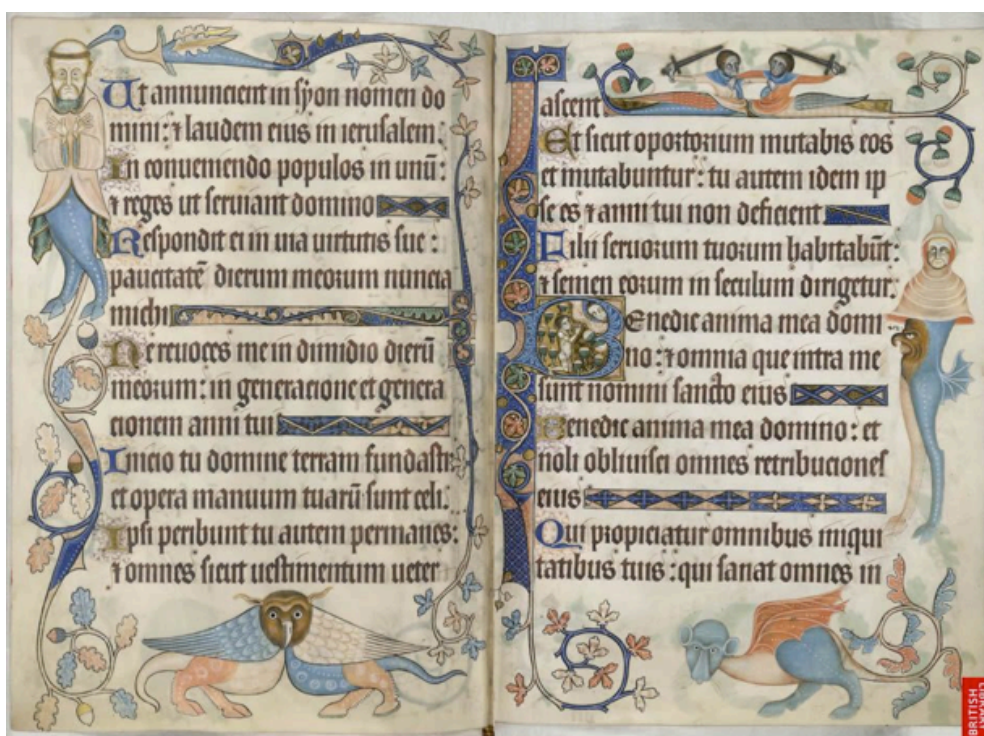 Ut annuncient in syon nomen do
mini: ⁊ laudem eius in ierusalem.
In conueniendo populos in unū:
⁊ reges ut seruiant domino
Respondit ei in uia uirtutis sue:
paucitatē dierum meorum nuncia
michi
Ne reuoces me in dimidio dierū
meorum: in generacione et genera
cionem anni tui
Inicio tu domine terram fundasti:
et opera manuum tuarū sunt celi.
Ipsi peribunt tu autem permanes:
⁊ omnes sicut uestimentum ueter
ascent
Et sicut opertorium mutabis eos
et mutabuntur: tu autem idem ip
se es ⁊ anni tui non deficient
Filii seruorum tuorum habitabūt:
⁊ semen eorum in seculum dirigetur.
Benedic anima mea domi
no: ⁊ omnia que intra me
sunt nomini sancto eius
Benedic anima mea domino: et
noli obliuisci omnes retribuciones
eius
Qui propiciatur omnibus iniqui
tatibus tuis: qui sanat omnes in
BRITISH
LIBRARY